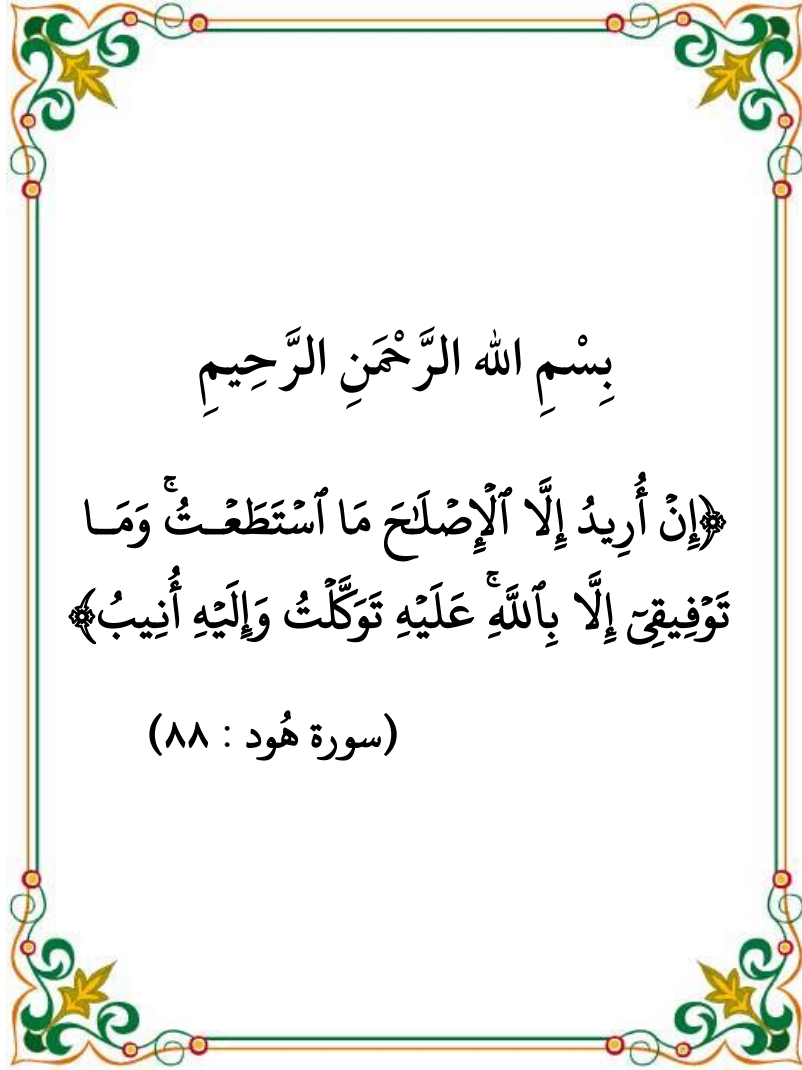 بِسْمِ الله الرَّحْمَنِ الرَّحِيمِ
﴿إِنْ أُرِيدُ إِلَّا ٱلْإِصْلَٰحَ مَا ٱسْتَطَعْـتُۚ وَمَـا
تَوْفِيقِىٓ إِلَّا بِٱللَّهِۚ عَلَيْهِ تَوَكَّلْتُ وَإِلَيْهِ أُنِيبُ﴾
(سورة هُود : ٨٨)